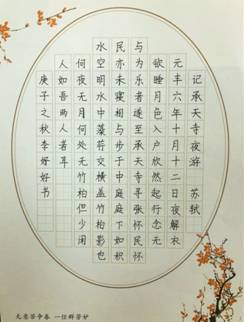 记承天寺夜游 苏轼
元丰六年十月十二日夜解衣
欲睡月色入户欣然起行念无
与为乐者遂至承天寺寻张怀民怀
民亦未寝相与步于中庭庭下如积
水空明水中藻荇交横盖竹柏影也
何夜无月何处无竹柏但少闲
人如吾两人者耳
庚子之秋李好书
无意苦争春 一任群芳妒